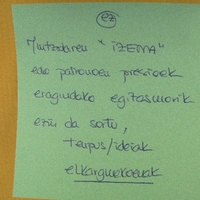 ez
Mintzaren "IZENA"
edo patronoen presioek
eragindako egitasmorik
ezin da sortu,
tenpus/ideiak
elkarguneak